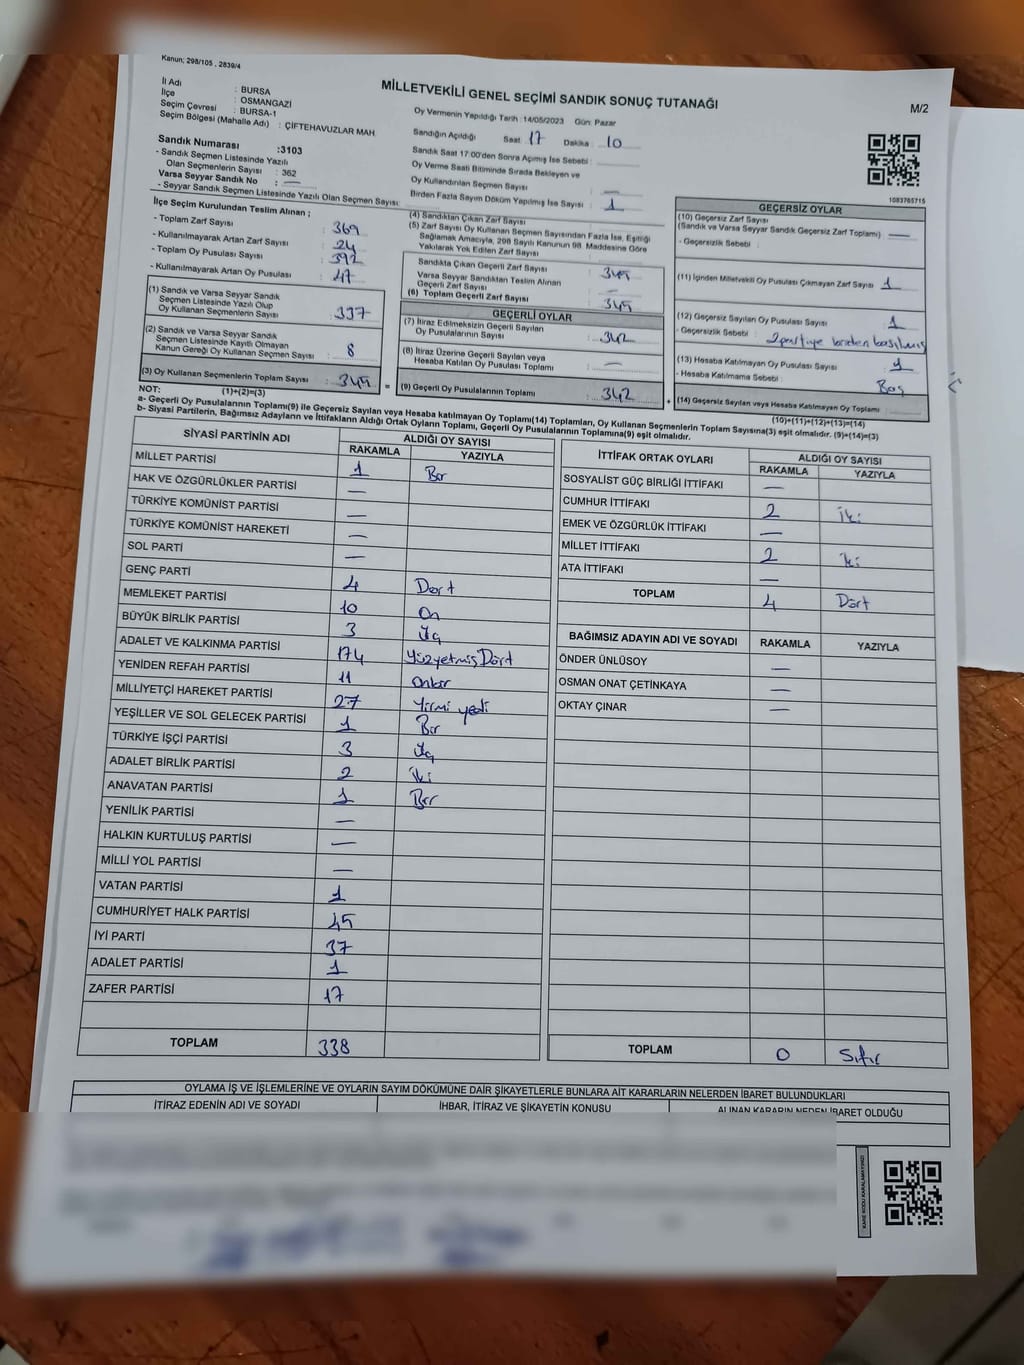 Kanun; 298/105 , 2839/4
MİLLETVEKİLİ GENEL SEÇİMİ SANDIK SONUÇ TUTANAĞI
M/2
İl Adı : BURSA
İlçe : OSMANGAZİ
Seçim Çevresi : BURSA-1
Seçim Bölgesi (Mahalle Adı) : ÇİFTEHAVUZLAR MAH.
Oy Vermenin Yapıldığı Tarih :14/05/2023 Gün: Pazar
Sandığın Açıldığı Saat 17 Dakika 10
Sandık Saat 17:00'den Sonra Açılmış İse Sebebi :
Oy Verme Saati Bitiminde Sırada Bekleyen ve
Oy Kullandırılan Seçmen Sayısı : —
Birden Fazla Sayım Döküm Yapılmış İse Sayısı : 1
Sandık Numarası :3103
- Sandık Seçmen Listesinde Yazılı
Olan Seçmenlerin Sayısı : 362
Varsa Seyyar Sandık No : —
- Seyyar Sandık Seçmen Listesinde Yazılı Olan Seçmen Sayısı:
1083765715
İlçe Seçim Kurulundan Teslim Alınan ;
- Toplam Zarf Sayısı : 369
- Kullanılmayarak Artan Zarf Sayısı : 24
- Toplam Oy Pusulası Sayısı : 392
- Kullanılmayarak Artan Oy Pusulası : 47
(1) Sandık ve Varsa Seyyar Sandık
Seçmen Listesinde Yazılı Olup
Oy Kullanan Seçmenlerin Sayısı : 337
(2) Sandık ve Varsa Seyyar Sandık
Seçmen Listesinde Kayıtlı Olmayan
Kanun Gereği Oy Kullanan Seçmen Sayısı : 8
(3) Oy Kullanan Seçmenlerin Toplam Sayısı : 345
(4) Sandıktan Çıkan Zarf Sayısı
(5) Zarf Sayısı Oy Kullanan Seçmen Sayısından Fazla İse, Eşitliği
Sağlamak Amacıyla, 298 Sayılı Kanunun 98. Maddesine Göre
Yakılarak Yok Edilen Zarf Sayısı :
Sandıkta Çıkan Geçerli Zarf Sayısı : 345
Varsa Seyyar Sandıktan Teslim Alınan
Geçerli Zarf Sayısı : —
(6) Toplam Geçerli Zarf Sayısı : 345
GEÇERLİ OYLAR
(7) İtiraz Edilmeksizin Geçerli Sayılan
Oy Pusulalarının Sayısı : 342
(8) İtiraz Üzerine Geçerli Sayılan veya
Hesaba Katılan Oy Pusulası Toplamı : —
= (9) Geçerli Oy Pusulalarının Toplamı : 342
GEÇERSİZ OYLAR
(10) Geçersiz Zarf Sayısı
(Sandık ve Varsa Seyyar Sandık Geçersiz Zarf Toplamı) : —
- Geçersizlik Sebebi :
(11) İçinden Milletvekili Oy Pusulası Çıkmayan Zarf Sayısı : 1
(12) Geçersiz Sayılan Oy Pusulası Sayısı : 1
- Geçersizlik Sebebi : 2 partiye birden basılmış
(13) Hesaba Katılmayan Oy Pusulası Sayısı : 1
- Hesaba Katılmama Sebebi : Boş
+ (14) Geçersiz Sayılan veya Hesaba Katılmayan Oy Toplamı :
NOT: (1)+(2)=(3)
(10)+(11)+(12)+(13)=(14)
a- Geçerli Oy Pusulalarının Toplamı(9) ile Geçersiz Sayılan veya Hesaba katılmayan Oy Toplamı(14) Toplamları, Oy Kullanan Seçmenlerin Toplam Sayısına(3) eşit olmalıdır. (9)+(14)=(3)
b- Siyasi Partilerin, Bağımsız Adayların ve İttifakların Aldığı Ortak Oyların Toplamı, Geçerli Oy Pusulalarının Toplamına(9) eşit olmalıdır.
SİYASİ PARTİNİN ADI ALDIĞI OY SAYISI
RAKAMLA YAZIYLA
MİLLET PARTİSİ 1 Bir
HAK VE ÖZGÜRLÜKLER PARTİSİ —
TÜRKİYE KOMÜNİST PARTİSİ —
TÜRKİYE KOMÜNİST HAREKETİ —
SOL PARTİ —
GENÇ PARTİ 4 Dört
MEMLEKET PARTİSİ 10 On
BÜYÜK BİRLİK PARTİSİ 3 Üç
ADALET VE KALKINMA PARTİSİ 174 Yüzyetmiş Dört
YENİDEN REFAH PARTİSİ 11 Onbir
MİLLİYETÇİ HAREKET PARTİSİ 27 Yirmi yedi
YEŞİLLER VE SOL GELECEK PARTİSİ 1 Bir
TÜRKİYE İŞÇİ PARTİSİ 3 Üç
ADALET BİRLİK PARTİSİ 2 İki
ANAVATAN PARTİSİ 1 Bir
YENİLİK PARTİSİ —
HALKIN KURTULUŞ PARTİSİ —
MİLLİ YOL PARTİSİ —
VATAN PARTİSİ 1
CUMHURİYET HALK PARTİSİ 45
İYİ PARTİ 37
ADALET PARTİSİ 1
ZAFER PARTİSİ 17
TOPLAM 338
İTTİFAK ORTAK OYLARI ALDIĞI OY SAYISI
RAKAMLA YAZIYLA
SOSYALİST GÜÇ BİRLİĞİ İTTİFAKI —
CUMHUR İTTİFAKI 2 İki
EMEK VE ÖZGÜRLÜK İTTİFAKI —
MİLLET İTTİFAKI 2 İki
ATA İTTİFAKI —
TOPLAM 4 Dört
BAĞIMSIZ ADAYIN ADI VE SOYADI RAKAMLA YAZIYLA
ÖNDER ÜNLÜSOY —
OSMAN ONAT ÇETİNKAYA —
OKTAY ÇINAR —
TOPLAM 0 Sıfır
OYLAMA İŞ VE İŞLEMLERİNE VE OYLARIN SAYIM DÖKÜMÜNE DAİR ŞİKAYETLERLE BUNLARA AİT KARARLARIN NELERDEN İBARET BULUNDUKLARI
İTİRAZ EDENİN ADI VE SOYADI İHBAR, İTİRAZ VE ŞİKAYETİN KONUSU ALINAN KARARIN NEDEN İBARET OLDUĞU
KARE KODU KARALAMAYINIZ!